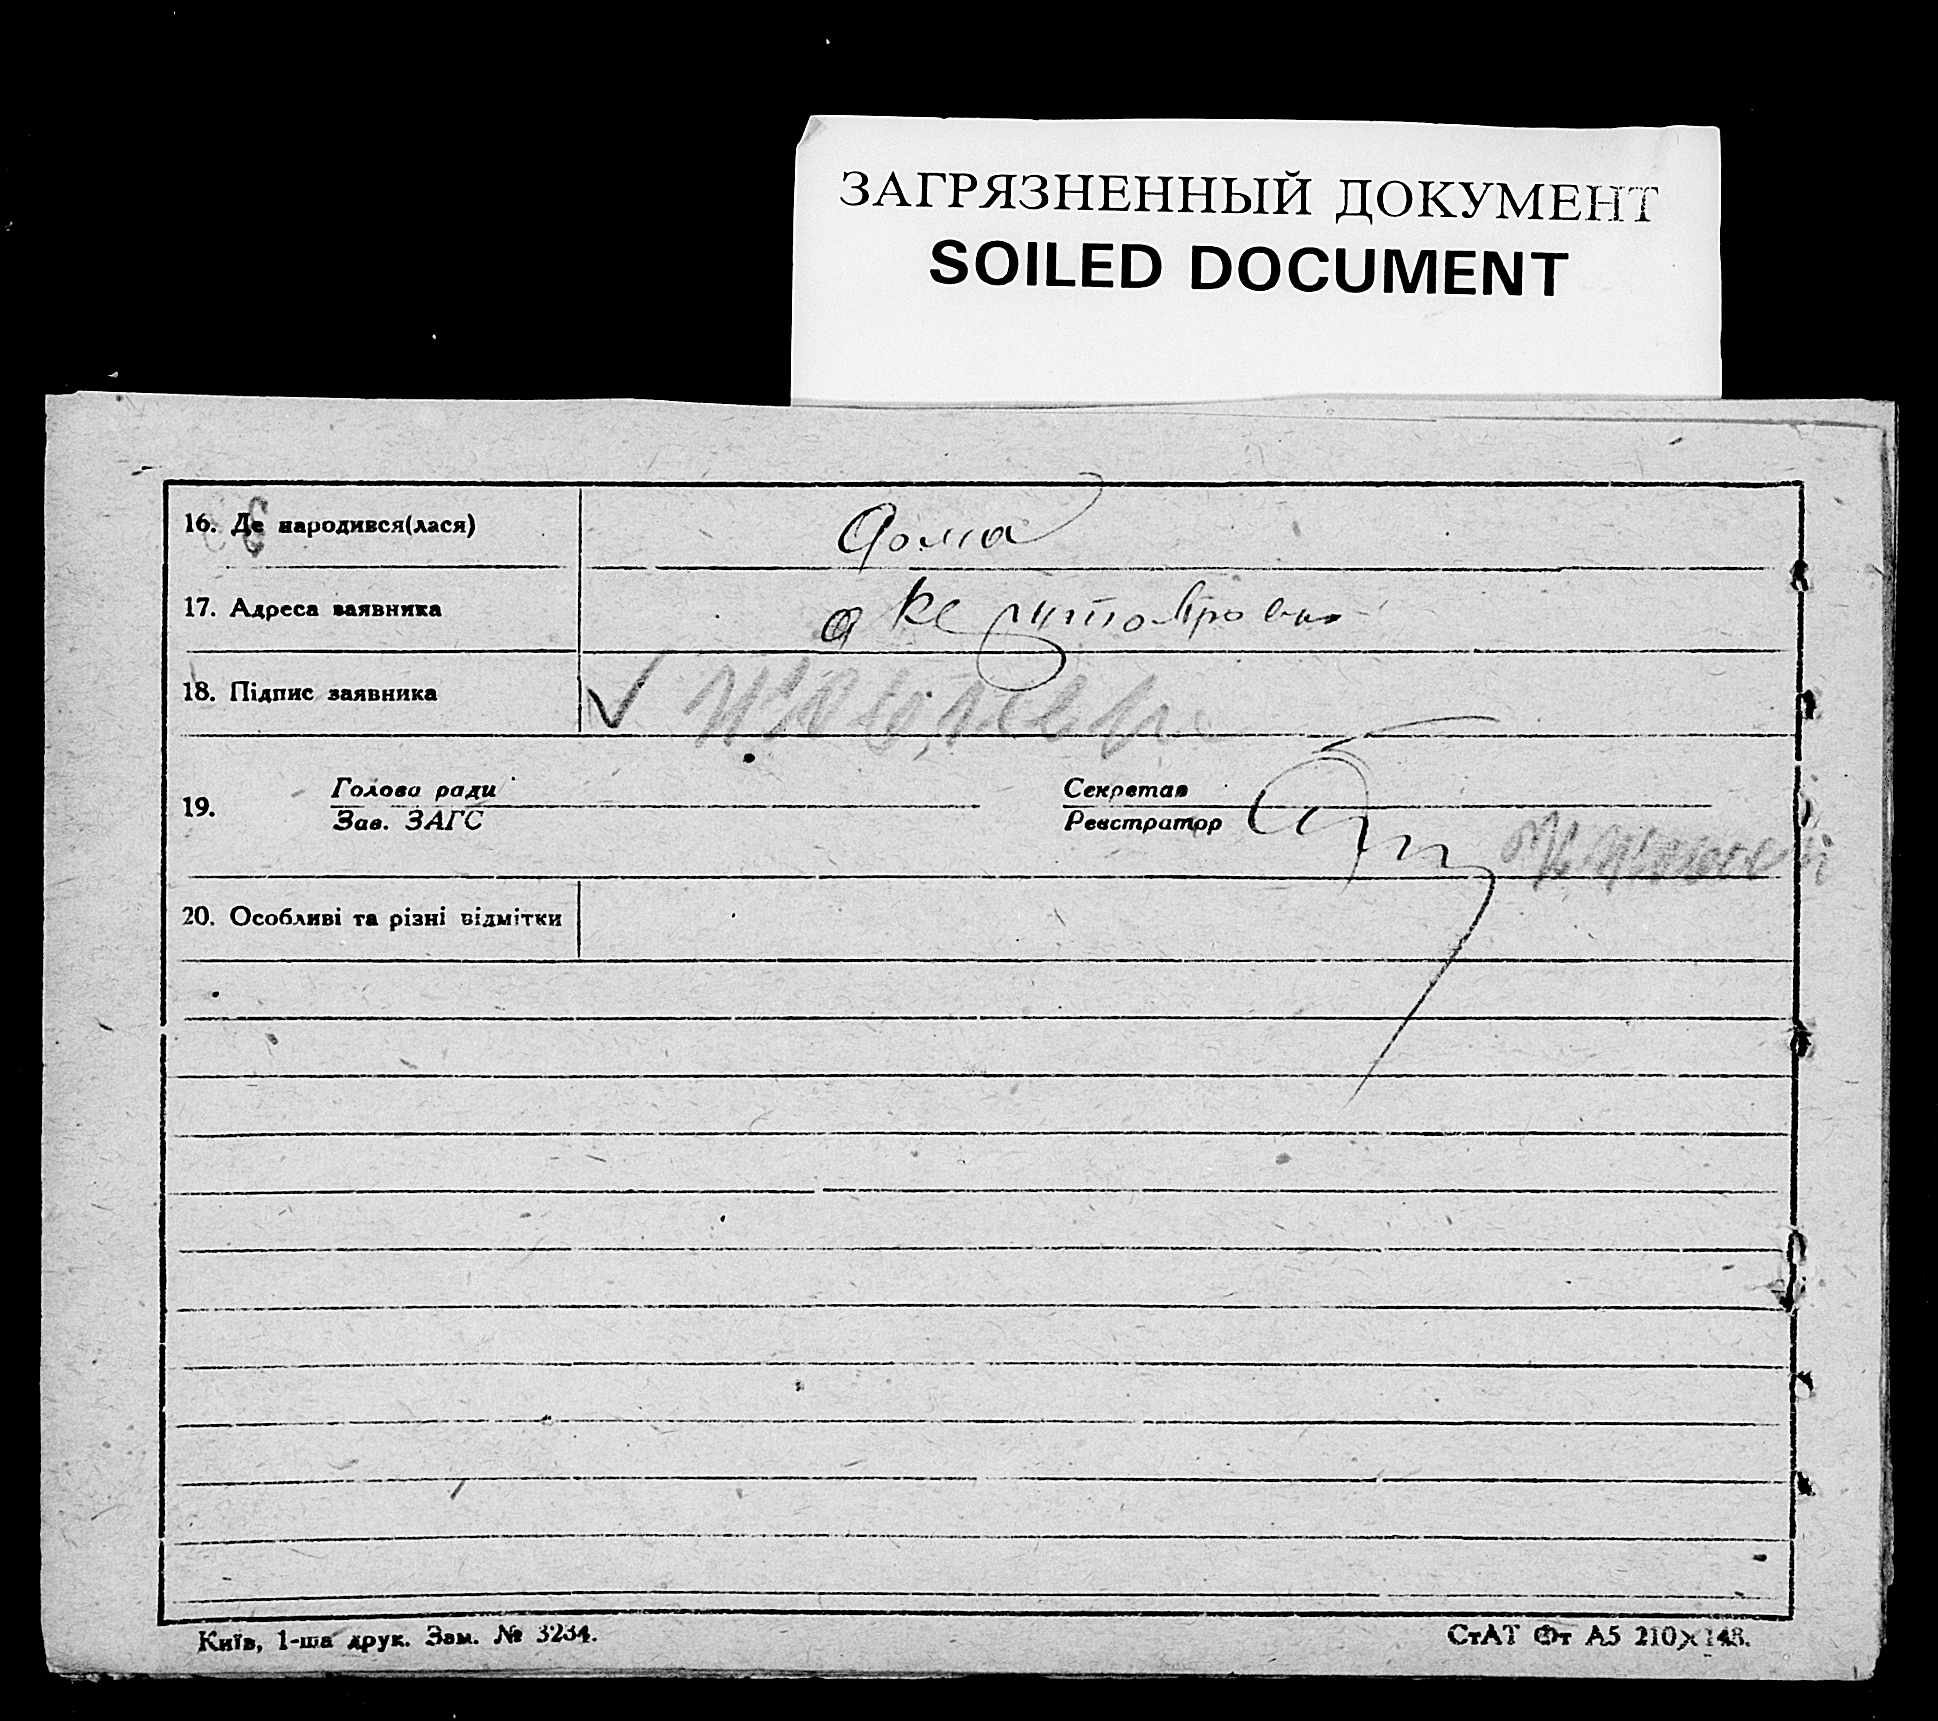 ЗАГРЯЗНЕННЫЙ ДОКУМЕНТ
SOILED DOCUMENT
16. Де народився(лася)
дома
17. Адреса заявника
18. Підпис заявника
19.
Голова ради
Зав. ЗАГС
Секретар
Реєстратор
20. Особливі та різні відмітки
Київ, 1-ша друк. Зам. № 3234.
СтАТ Фт А5 210×148.